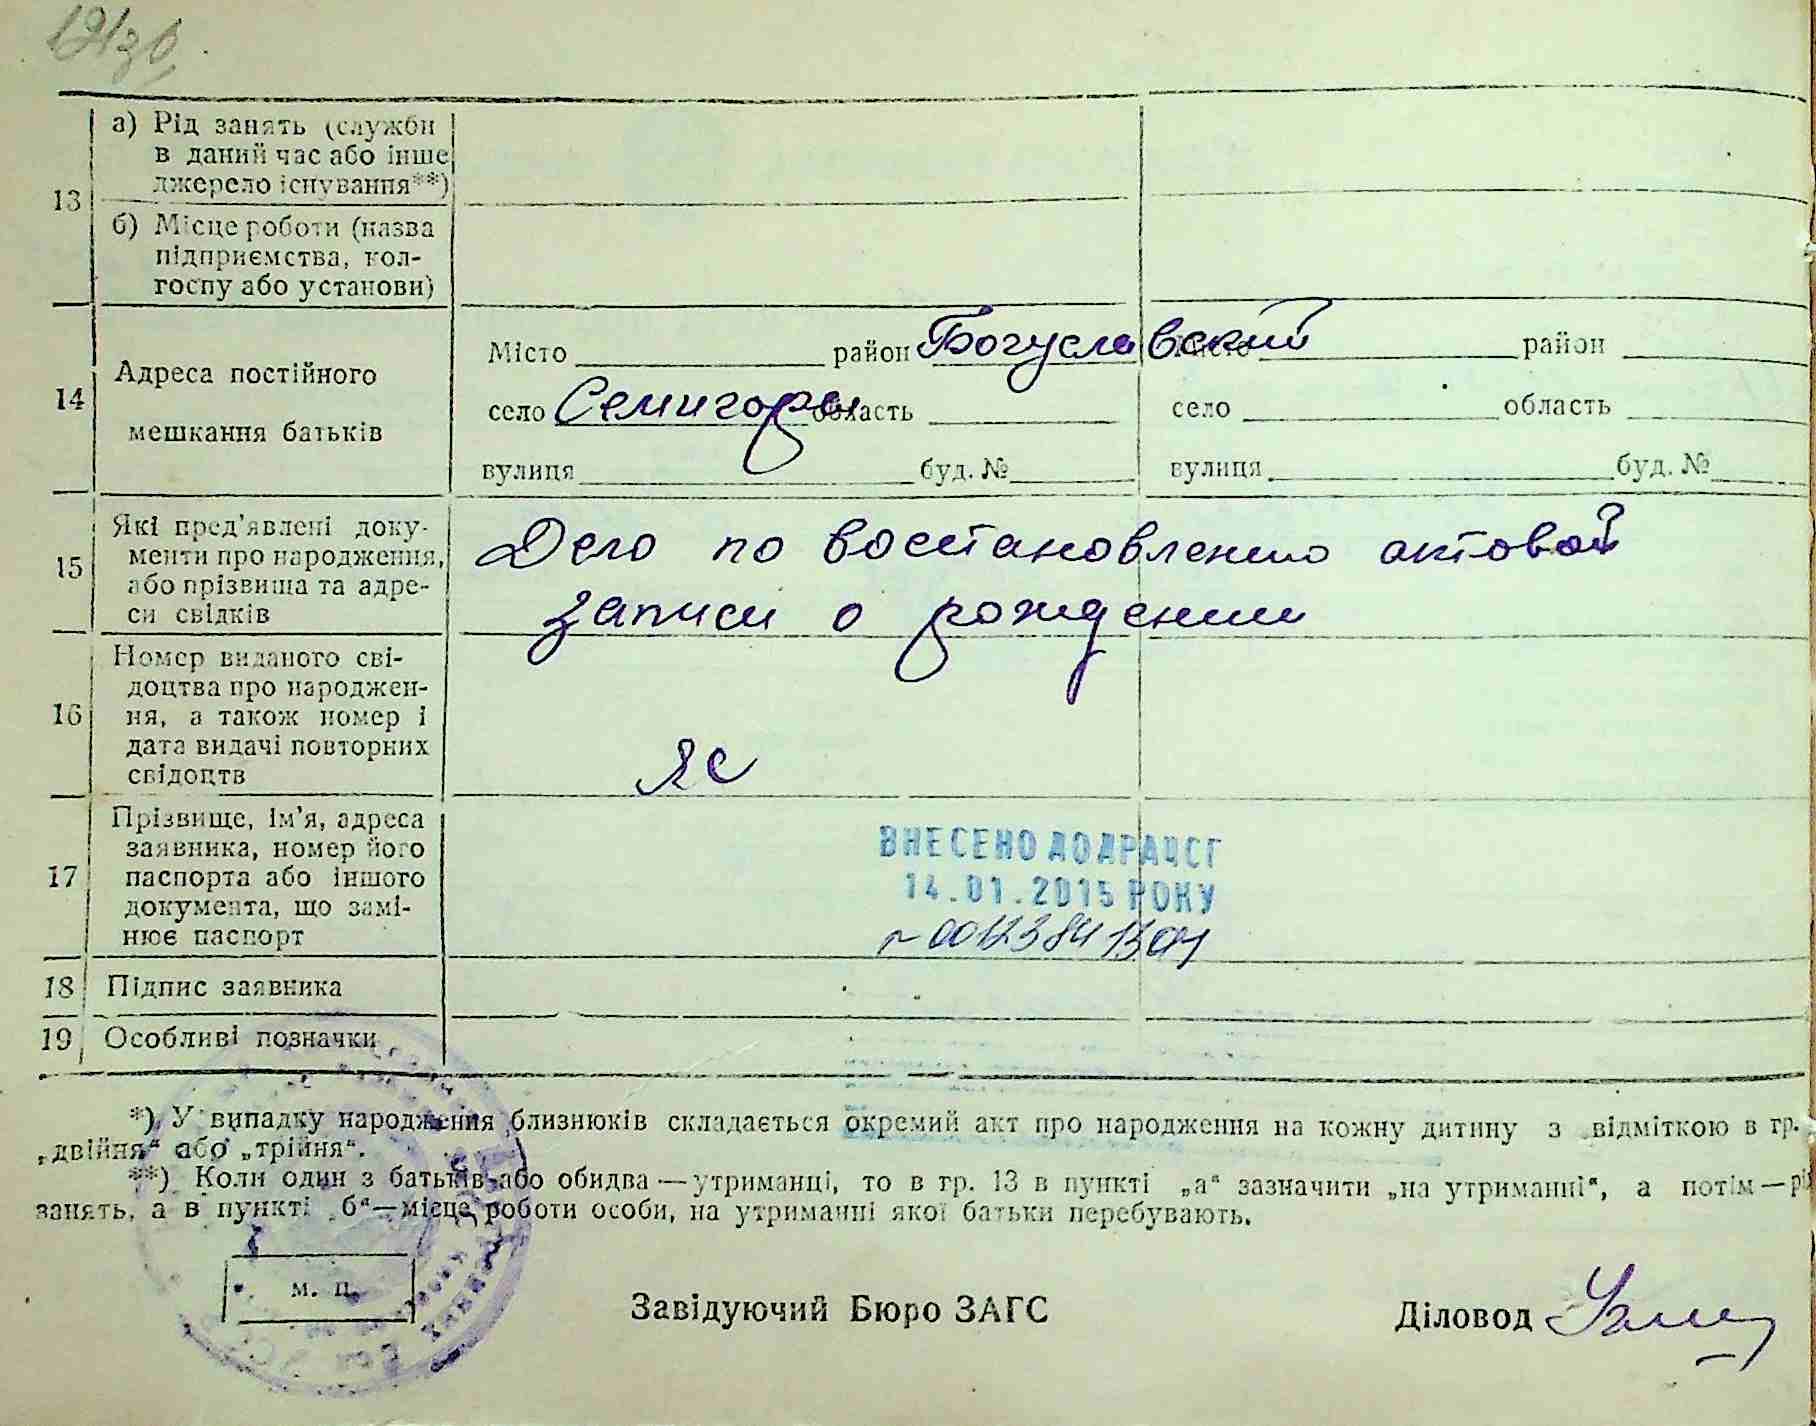 13
а) Рід занять (служби
в даний час або інше
джерело існування**)
б) Місце роботи (назва
підприємства, кол-
госпу або установи)
14
Адреса постійного
мешкання батьків
Місто район Богуславский
село Семигоры область
вулиця буд. №
Місто район
село область
вулиця буд. №
15
Які пред'явлені доку-
менти про народження,
або прізвища та адре-
си свідків
Дело по восстановлению актовой
записи о рождении
16
Номер виданого сві-
доцтва про народжен-
ня, а також номер і
дата видачі повторних
свідоцтв
ЯС
17
Прізвище, ім'я, адреса
заявника, номер його
паспорта або іншого
документа, що замі-
нює паспорт
ВНЕСЕНО ДО ДРАЦСГ
14.01.2015 РОКУ
18 Підпис заявника
19 Особливі позначки
*) У випадку народження близнюків складається окремий акт про народження на кожну дитину з відміткою в гр.
„двійня“ або „трійня“.
**) Коли один з батьків або обидва — утриманці, то в гр. 13 в пункті „а“ зазначити „на утриманні“, а потім — рід
занять, а в пункті „б“ — місце роботи особи, на утриманні якої батьки перебувають.
м. п.
Завідуючий Бюро ЗАГС
Діловод